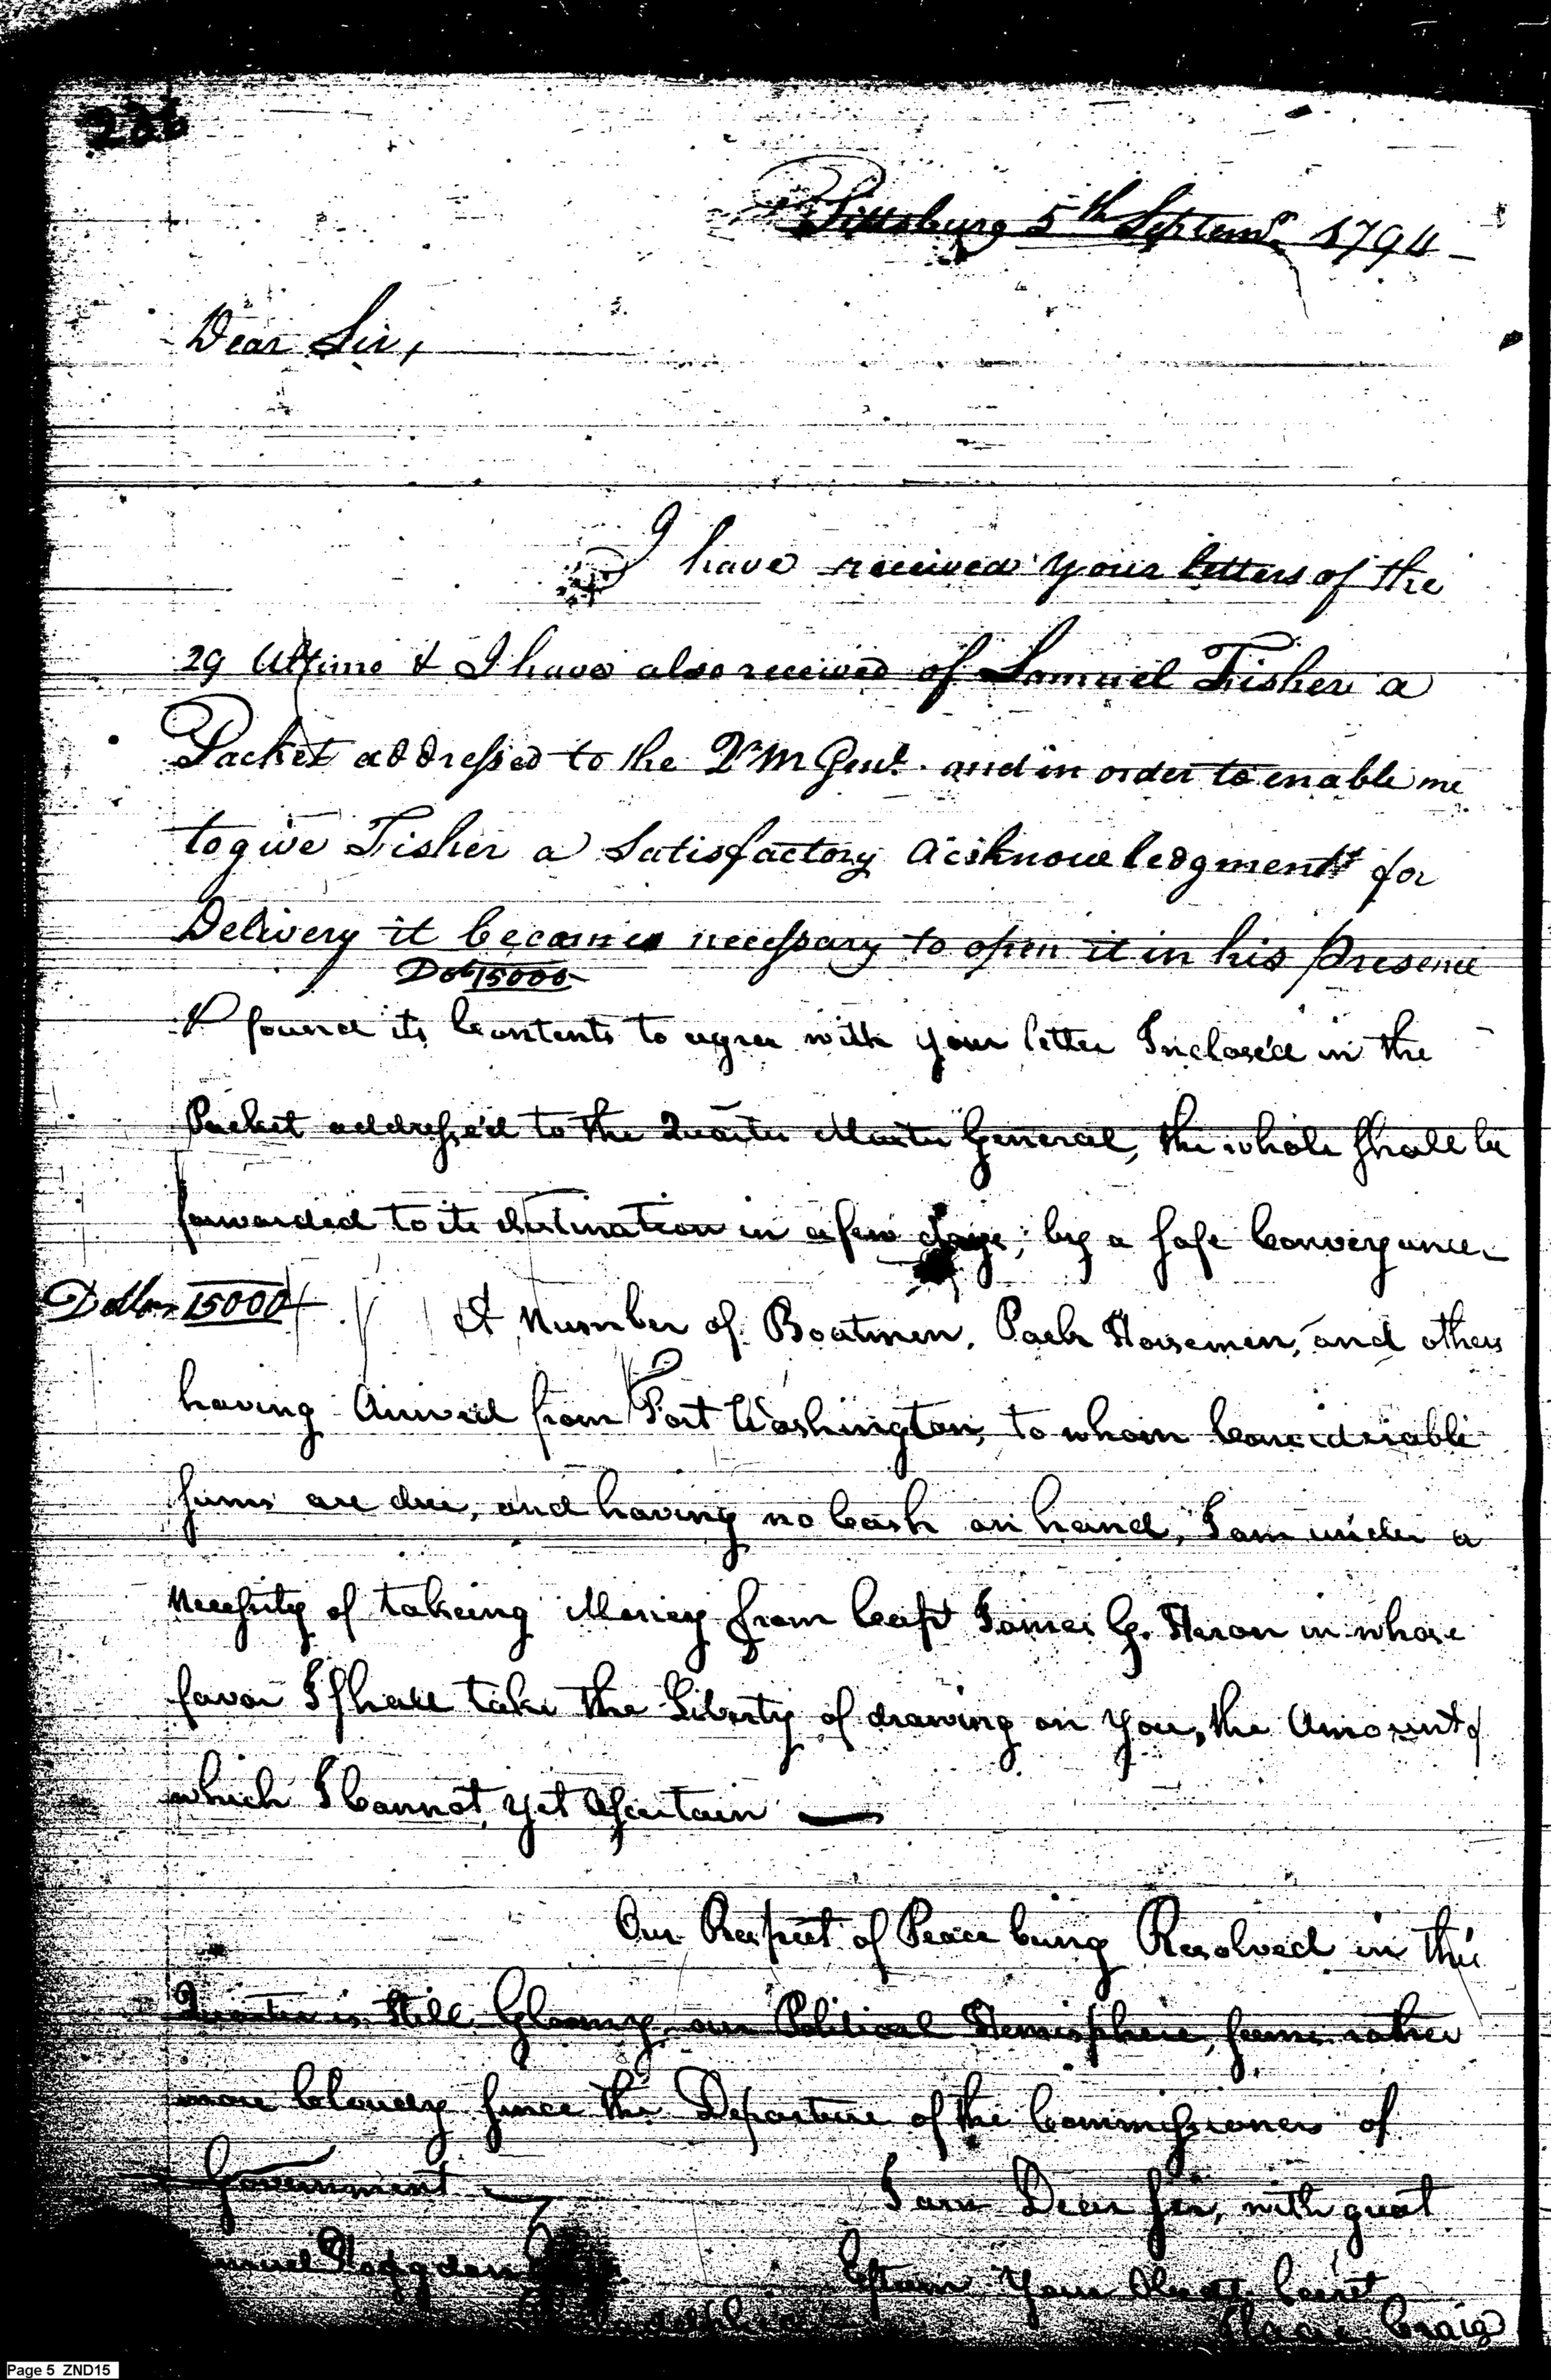 226
Pittsburg 5th Septemr. 1794
Dear Sir,
I have received your letters of the
29 Ultimo & I have also received of Samuel Fisher a
Packet addressed to the Qr M Genl. and in order to enable me
to give Fisher a Satisfactory Acknowledgment for
Delivery it becomes necessary to open it in his presence
Dols 15000
& found its Contents to agree with your letter Inclosed in the
Packet address'd to the Quarter Master General, the whole shall be
forwarded to its destination in a few days, by a safe Conveyance.
Dollars 15000
A Number of Boatmen, Pack Horsemen, and others
having Arrived from Fort Washington, to whom Considerable
sums are due, and having no Cash on hand, I am under a
Necessity of takeing Money from Capt James G. Heron in whose
favor I shall take the Liberty of drawing on you, the Amount of
which I Cannot yet Ascertain
Our Prospect of Peace being Resolved in this
Quarter is Still Gloomy, our Political Hemisphere, seems rather
more Cloudy since the Departure of the Commissioners of
Government
I am Dear Sir, with great
Samuel Hodgdon
Esteem Your Obedt. Servt
Philadelphia
Isaac Craig
Page 5 ZND15